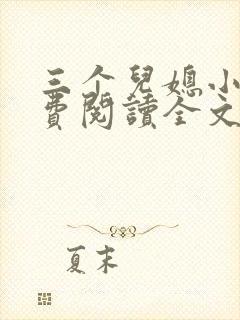 三个兒媳小
費閱讀全文
夏末